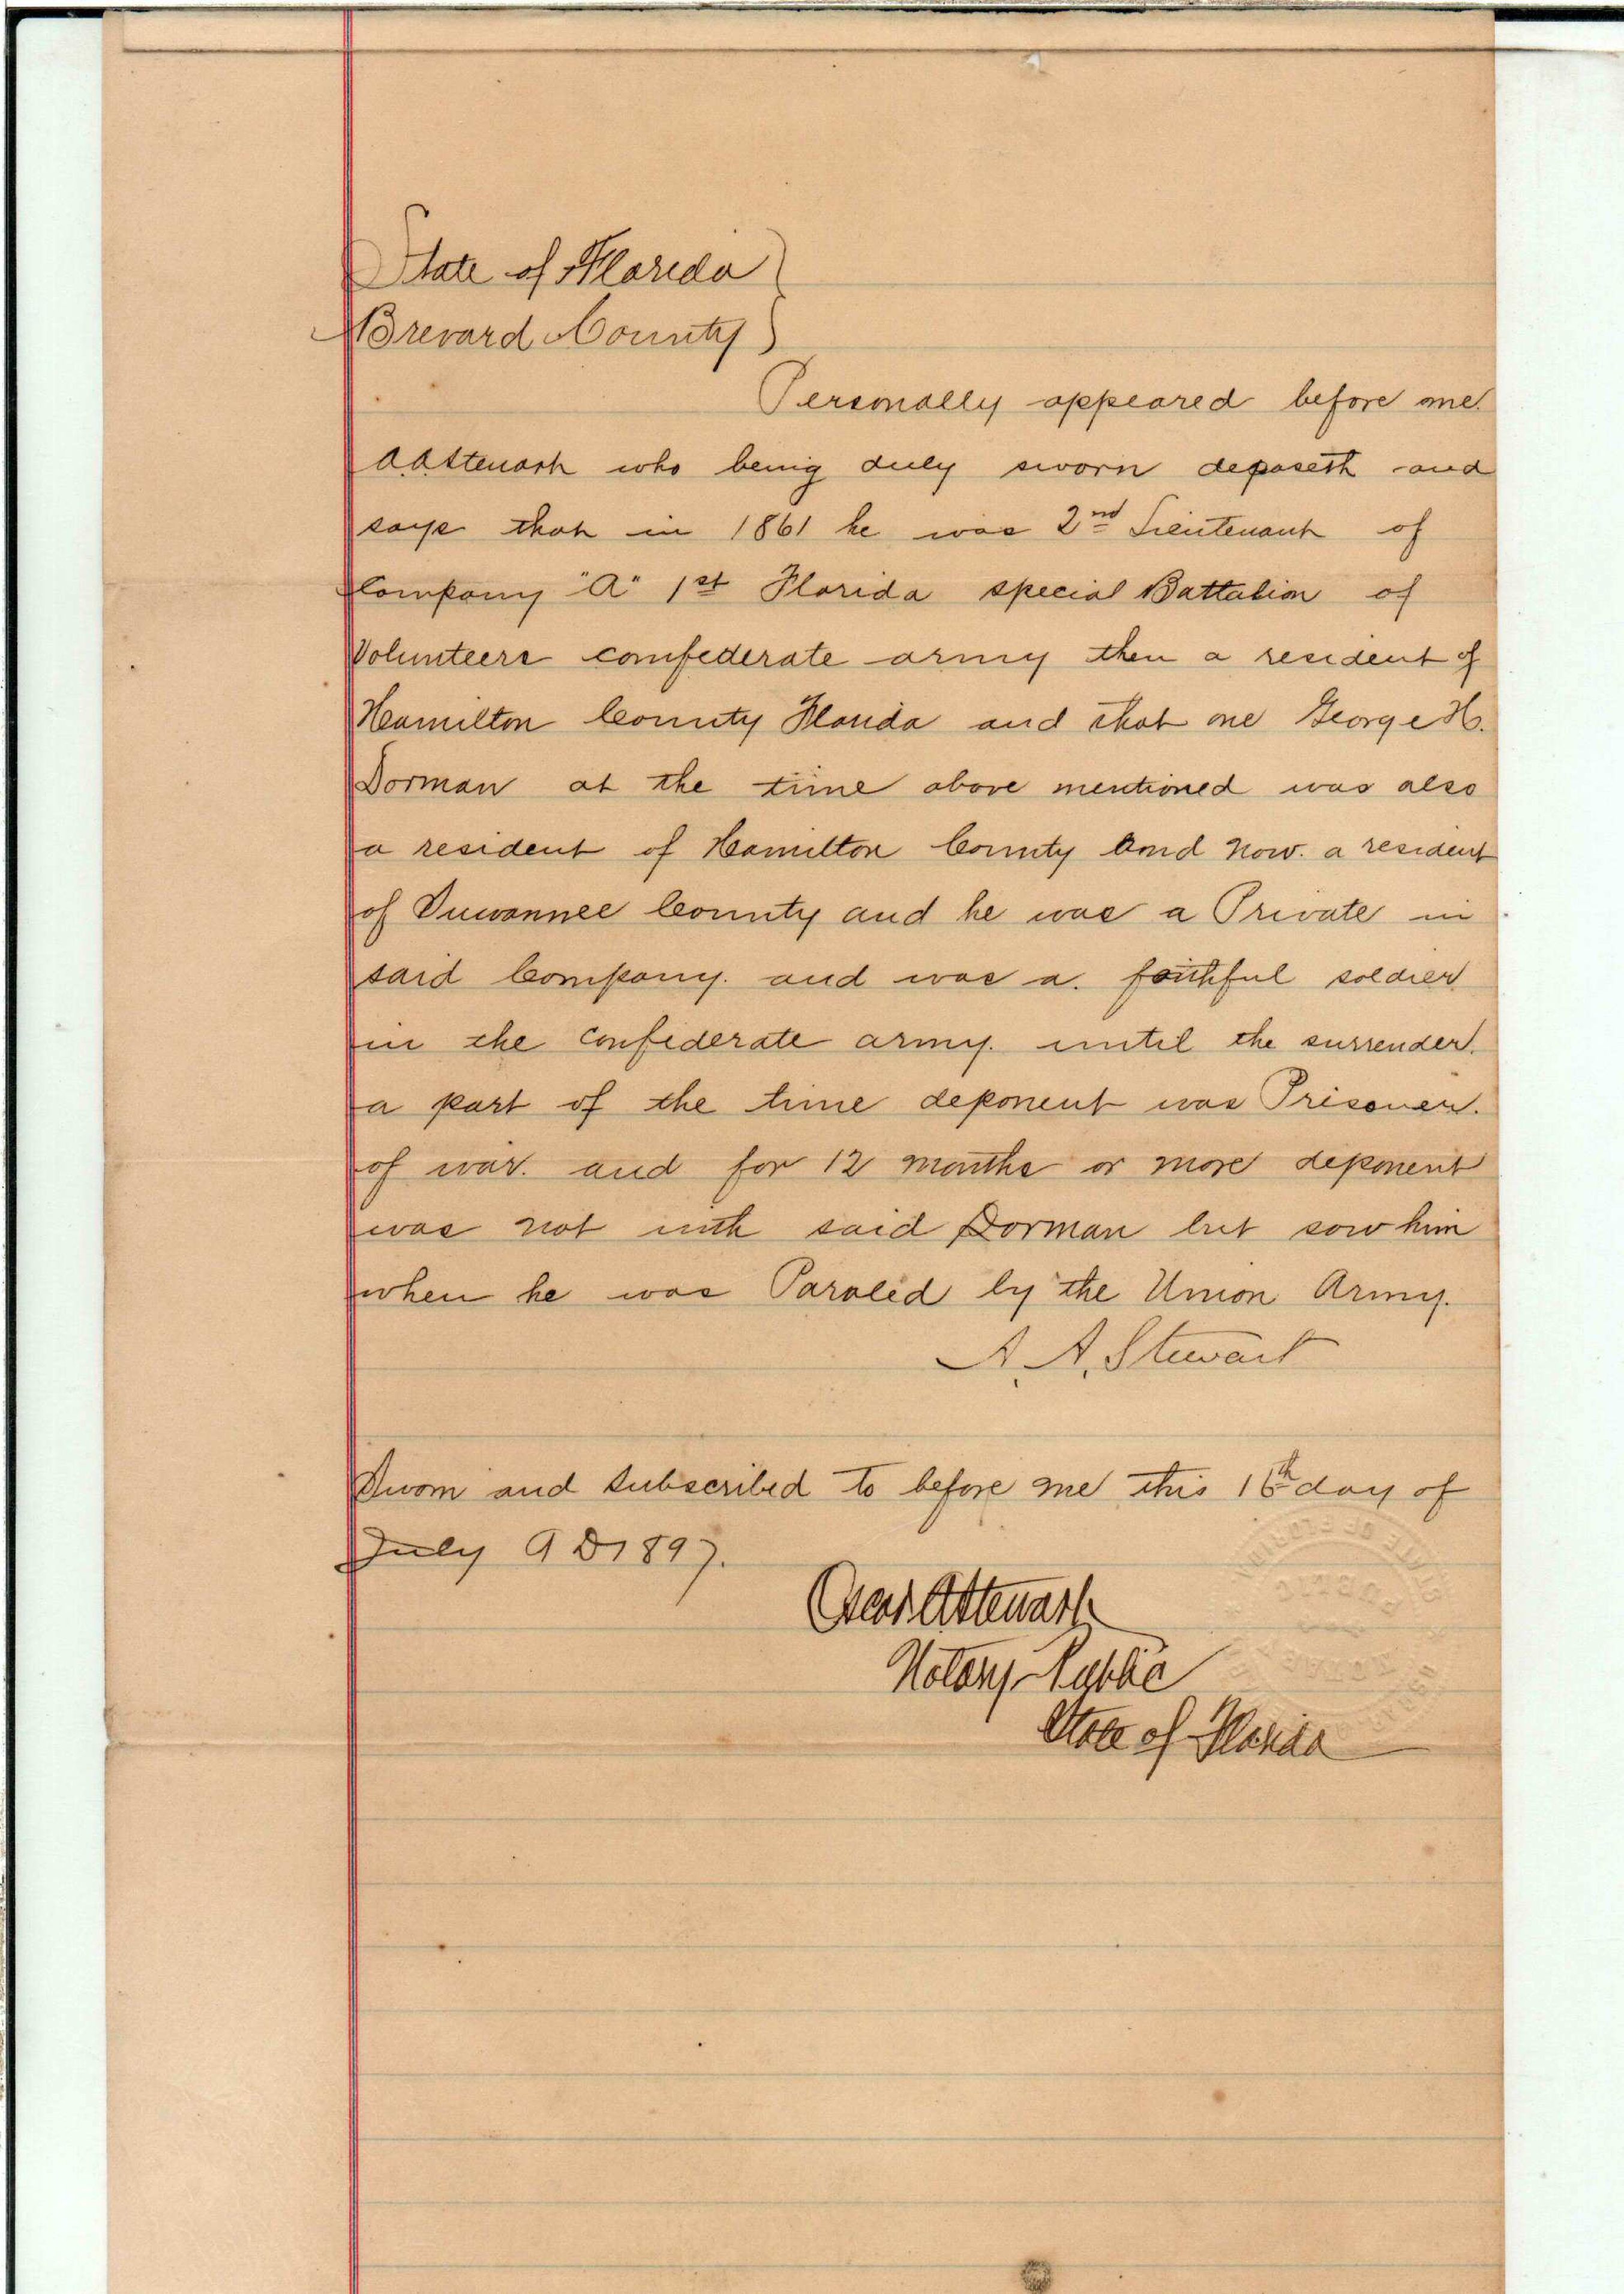 State of Florida
Brevard County
Personally appeared before me
A A Stewart who being duly sworn deposeth and
says that in 1861 he was 2nd Lieutenant of
Company "A" 1st Florida special Battalion of
Volunteers confederate army then a resident of
Hamilton County Florida and that one George H.
Dorman at the time above mentioned was also
a resident of Hamilton County and now. a resident
of Suwannee County and he was a Private in
said Company. and was a. faithful soldier
in the confederate army. until the surrender.
a part of the time deponent was Prisoner.
of war. and for 12 months or more deponent
was not with said Dorman but saw him
when he was Paroled by the Union Army.
A. A. Stewart
Sworn and subscribed to before me this 16th day of
July A D 1897.
Oscar A Stewart
Notary Public
State of Florida